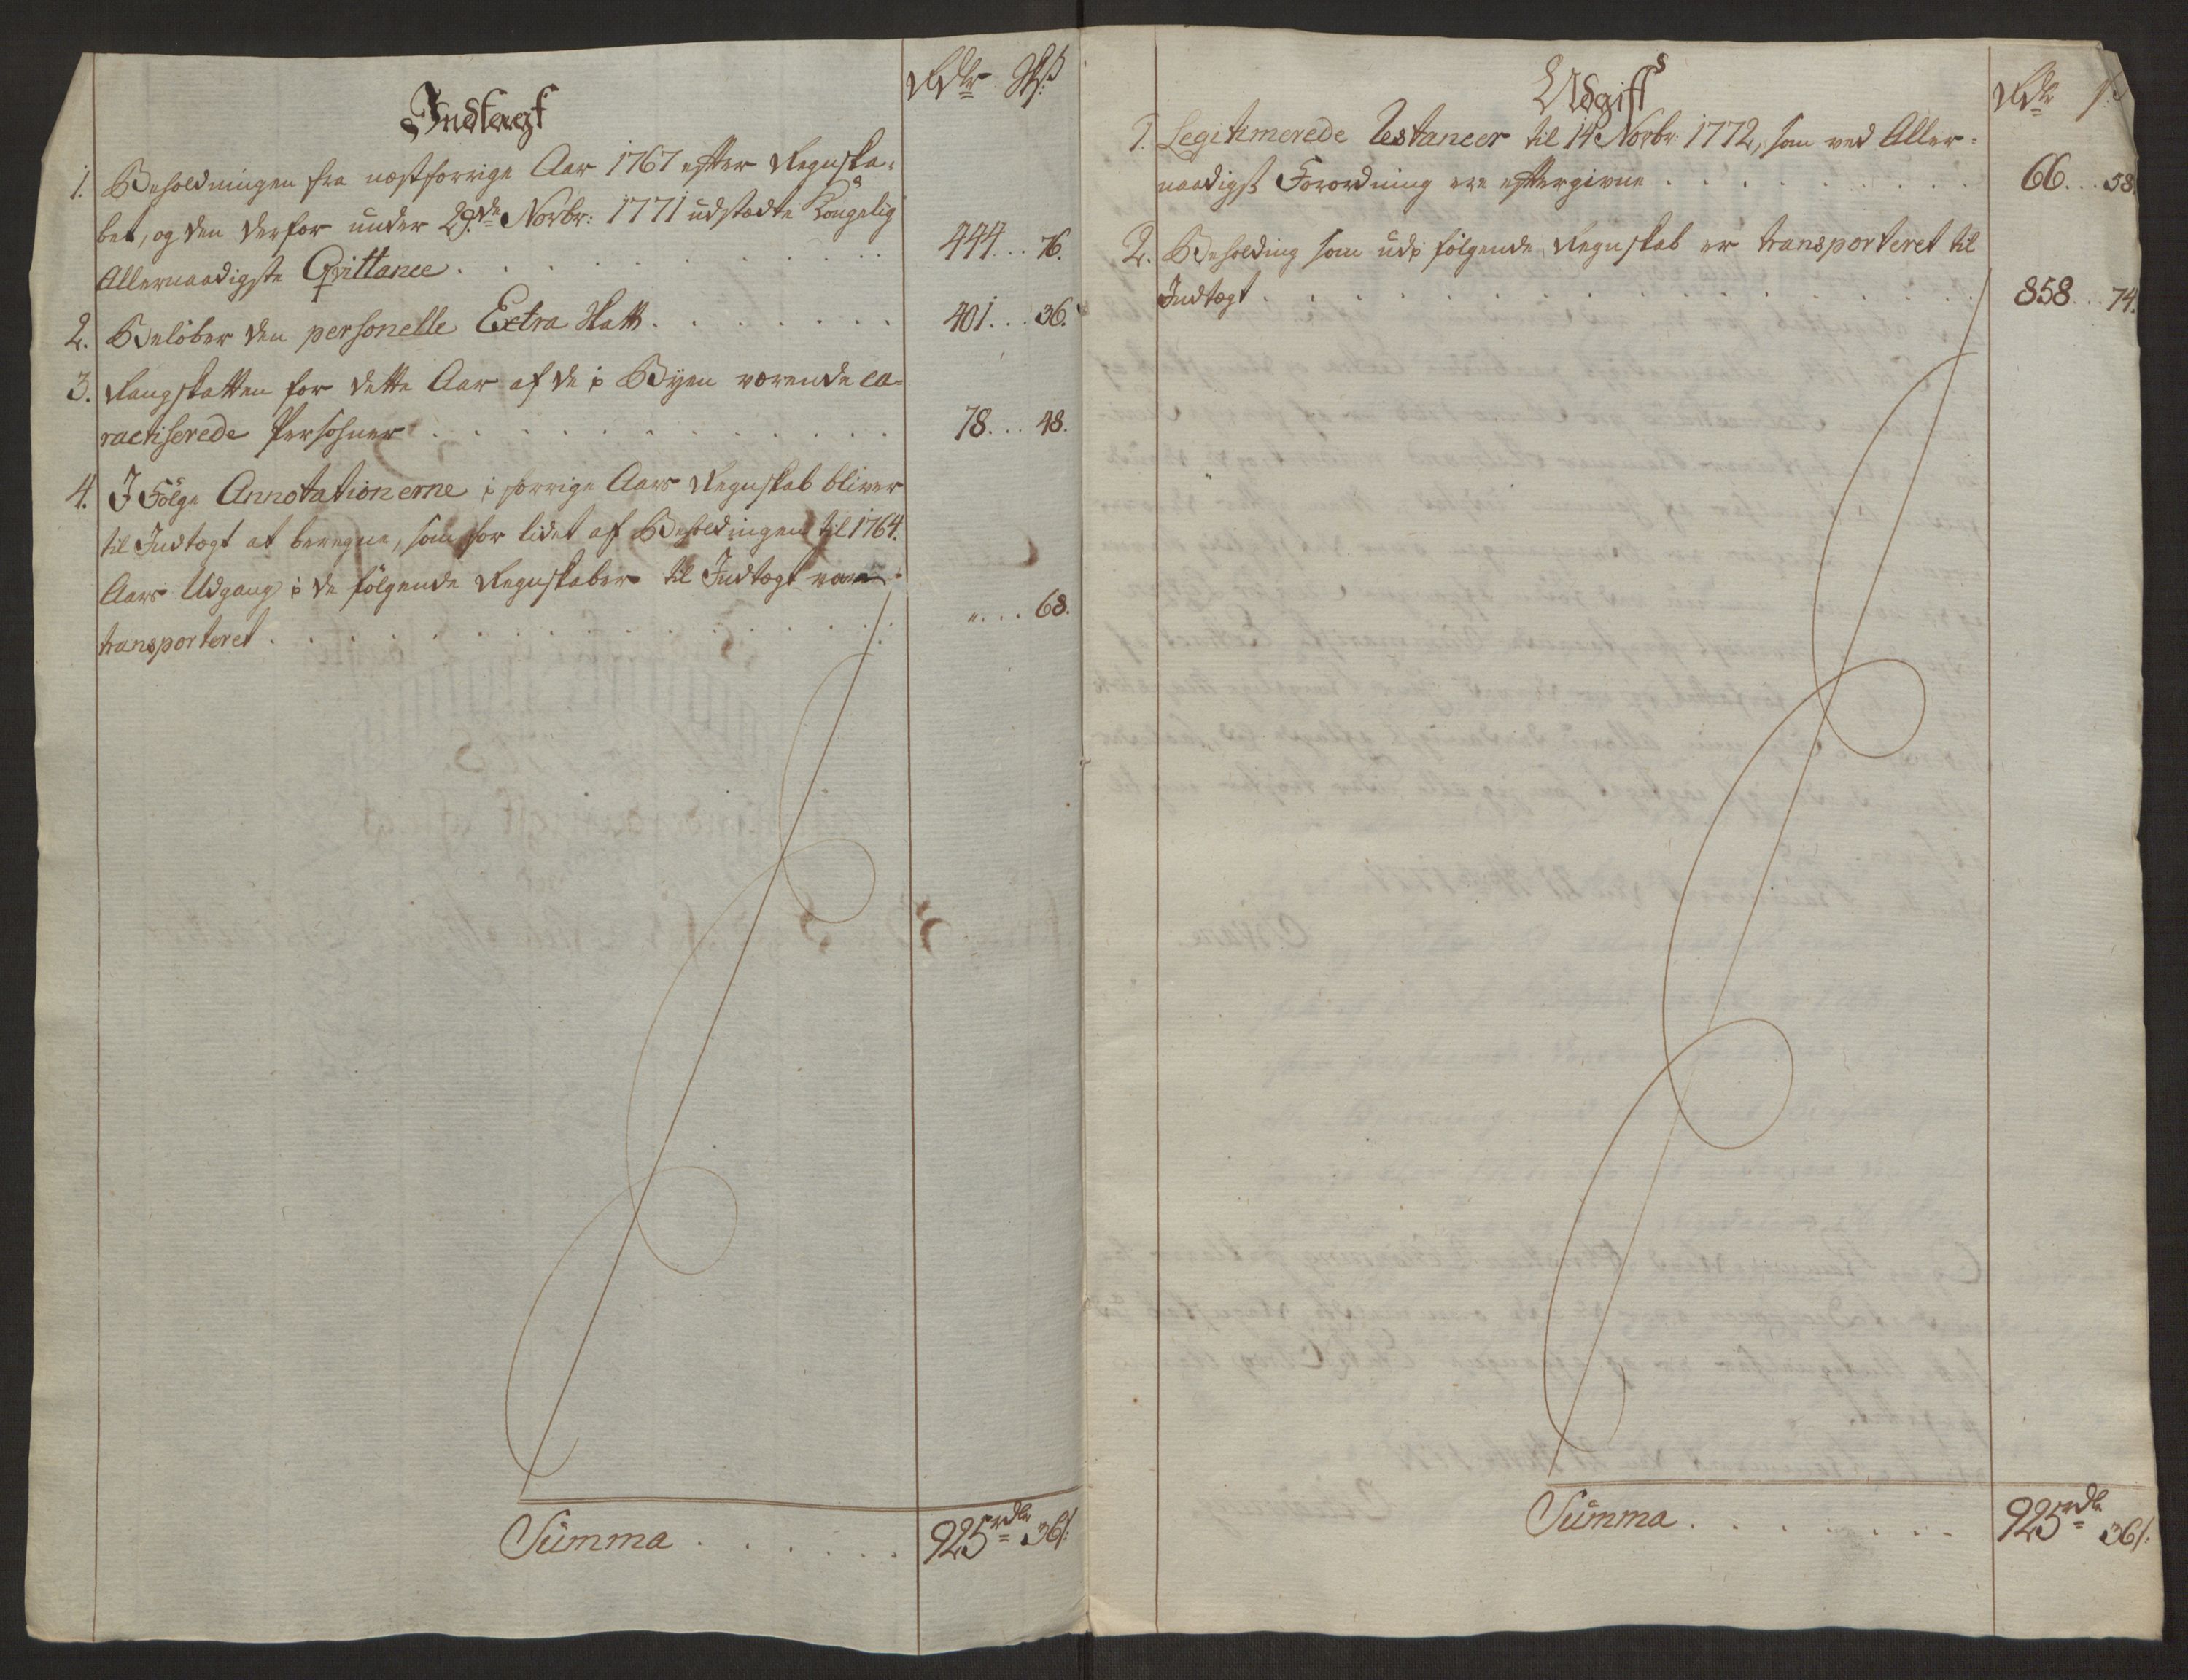 Indtægt
Rdlr Sk:
1. Beholdningen fra næstforrige Aar 1767 efter Regnska-
bet, og den derfor under 29de Novbr: 1771 udstædte Kongelig
Allernaadigste Qvittance . . . . . . . . . . 444 . . 76.
2. Beløber den personelle Extra Skatt . . . . . . . 401 . . . 36.
3. Rangskatten for dette Aar af de i Byen værende ca-
ractiserede Persohner . . . . . . . . . . . 78 . . . 48.
4. I Følge Annotationerne i forrige Aars Regnskab bliver
til Indtægt at beregne, som for lidet af Beholdningen til 1764.
Aars Udgang i de følgende Regnskaber til Indtægt var
transporteret . . . . . . . . . . . . . . . " . . . 68.
Summa . . . . . . 925 rdlr 36 s:
Udgift
Rdlr s:
1. Legitimerede Restancer til 14 Novbr: 1772, som ved Aller-
naadigst Forordning ere eftergivne . . . . . . . . 66 . . . 58.
2. Beholding som udi følgende Regnskab er transporteret til
Indtægt . . . . . . . . . . . . . . . . 858 . . . 74.
Summa . . . . . . . 925 rdlr 36 s: